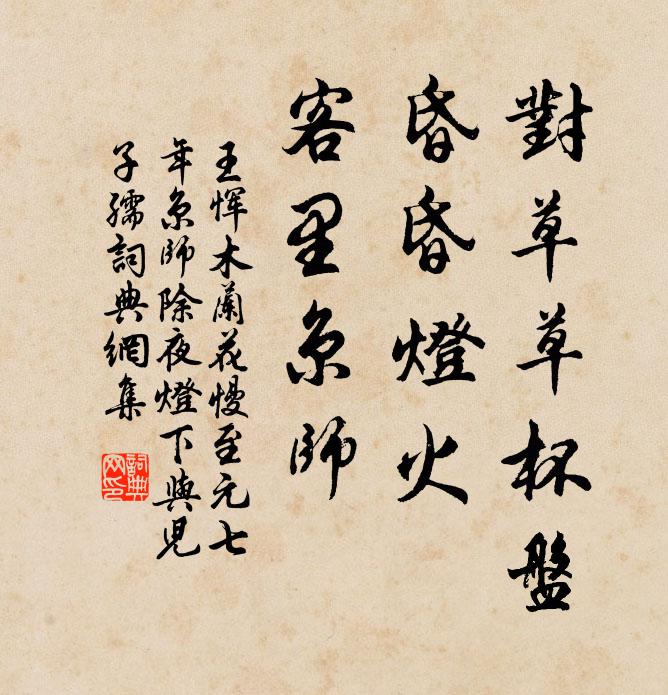 對草草杯盤
昏昏燈火
客里京師
王惲木蘭花慢至元七
年京師除夜燈下與兒
子孺詞典網集
詞典
网印